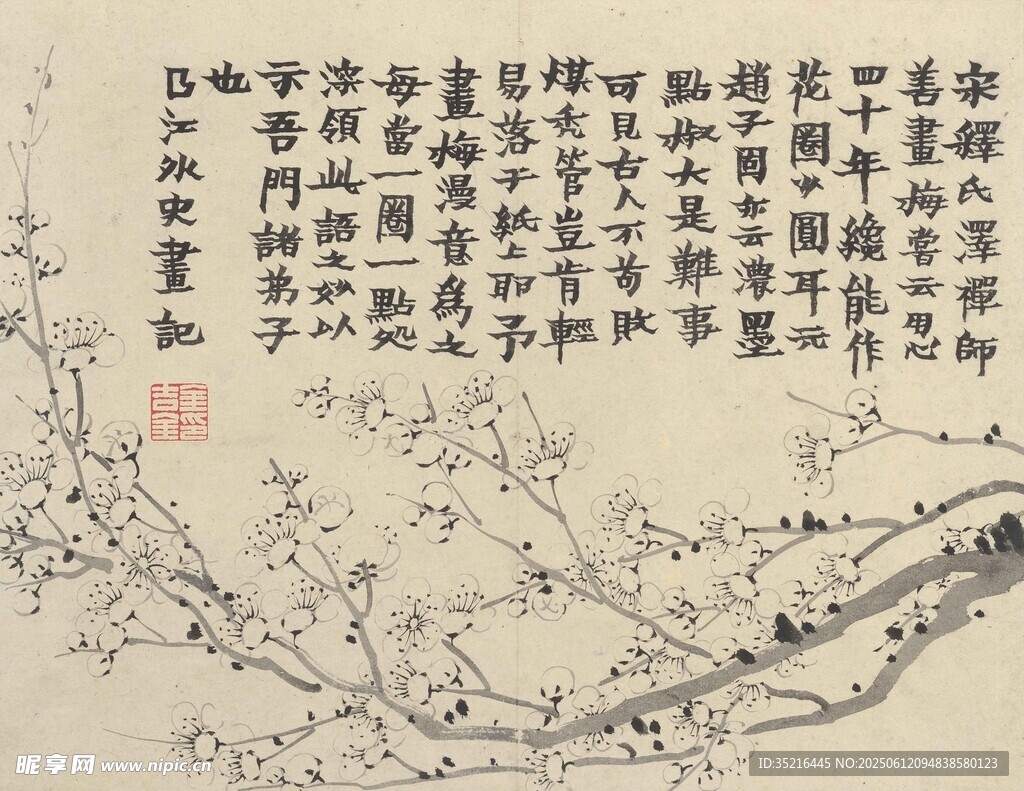 宋釋氏澤禪師
善畫梅嘗云用心
四十年纔能作
花圈少圓耳元
趙子固亦云濃墨
點椒大是難事
可見古人不苟敗
煤禿管豈肯輕
易落于紙上耶予
畫梅漫意爲之
每當一圈一點処
深領此語之妙以
示吾門諸弟子
也
江外史畫記
金吉金印
昵享网 www.nipic.cn
ID:35216445 NO:20250612094838580123